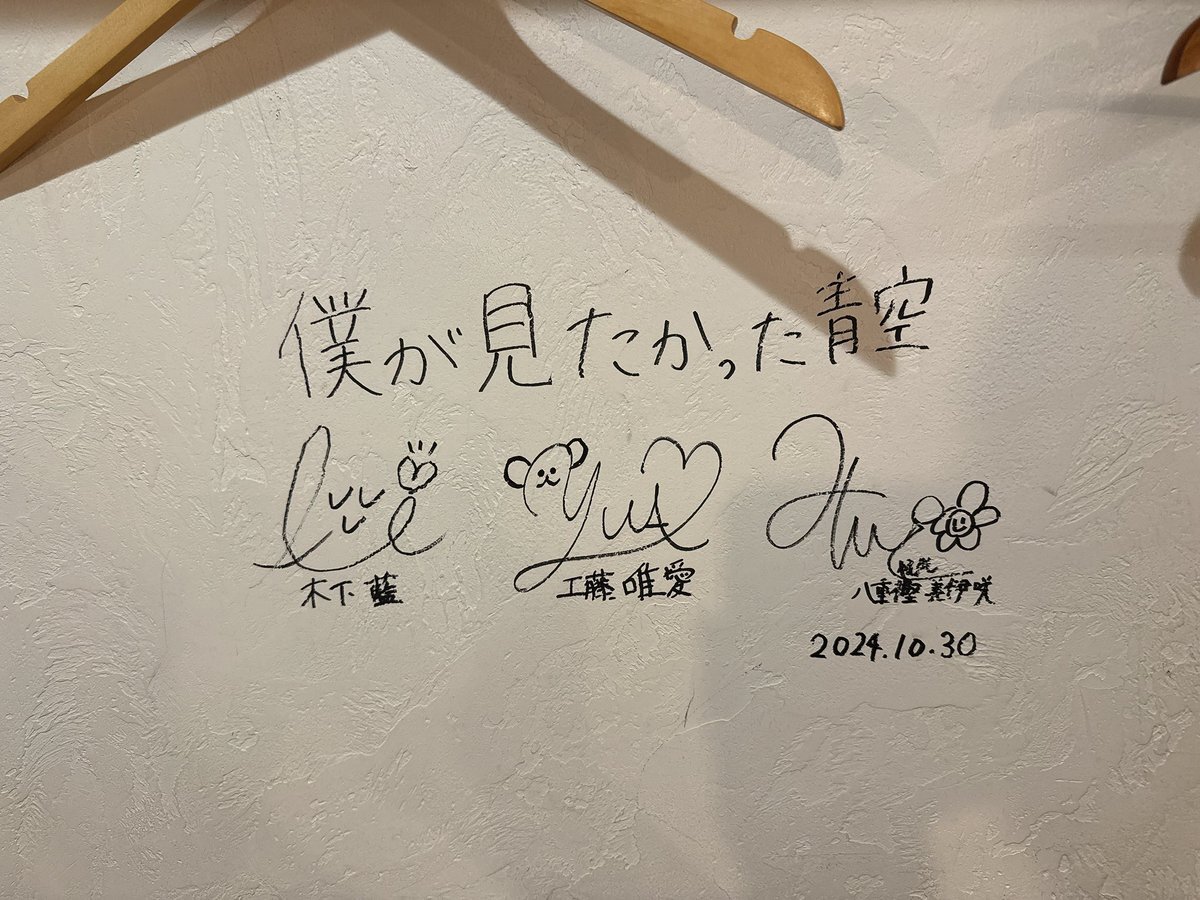 僕が見たかった青空
yuu
木下 藍 工藤 唯愛 八重樫 美伊咲
2024.10.30